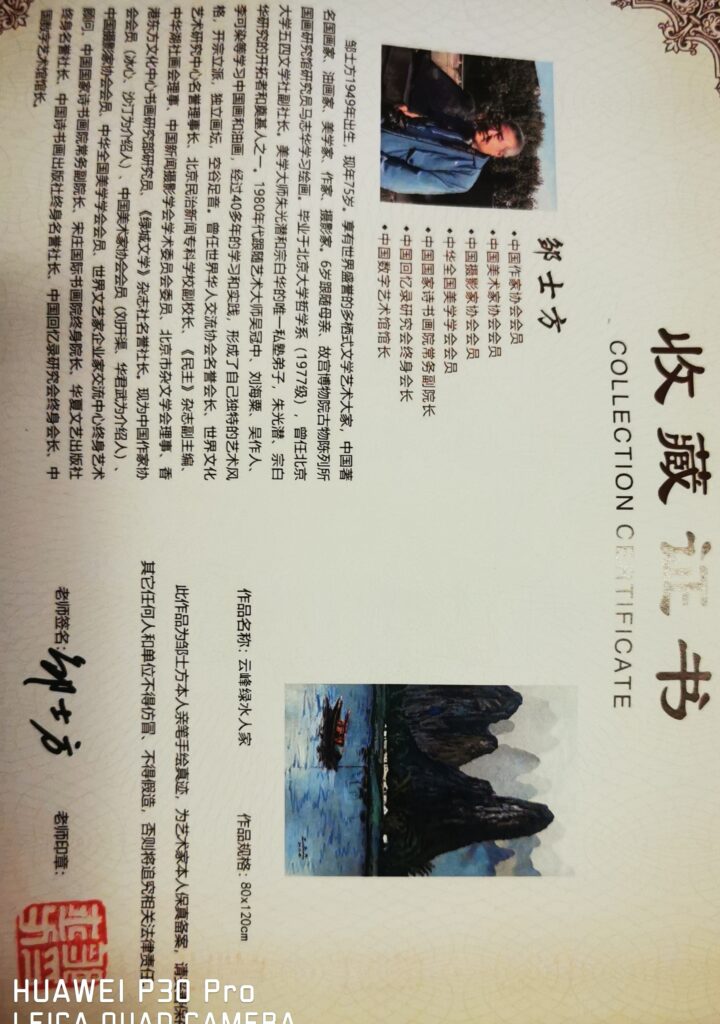 收藏证书
COLLECTION CERTIFICATE
邹士方
•中国作家协会会员
•中国美术家协会会员
•中国摄影家协会会员
•中华全国美学学会会员
•中国国家诗书画院常务副院长
•中国回忆录研究会终身会长
•中国数字艺术馆馆长
邹士方1949年出生，现年75岁。享有世界盛誉的多栖式文学艺术大家，中国著
名国画家、油画家、美学家、作家、摄影家。6岁跟随母亲、故宫博物院古物陈列所
国画研究馆研究员马志华学习绘画。毕业于北京大学哲学系（1977级），曾任北京
大学五四文学社副社长。美学大师朱光潜和宗白华的唯一私塾弟子，朱光潜、宗白
华研究的开拓者和奠基人之一。1980年代跟随艺术大师吴冠中、刘海粟、吴作人、
李可染等学习中国画和油画，经过40多年的学习和实践，形成了自己独特的艺术风
格，开宗立派，独立画坛，空谷足音。曾任世界华人交流协会名誉会长、世界文化
艺术研究中心名誉理事长、北京民治新闻专科学校副校长、《民主》杂志副主编、
中华湖社画会理事、中国新闻摄影学会学术委员会委员、北京市杂文学会理事、香
港东方文化中心书画研究部研究员、《绿城文学》杂志社名誉社长。现为中国作家协
会会员（冰心、沙汀为介绍人）、中国美术家协会会员（刘开渠、华君武为介绍人）、
中国摄影家协会会员、中华全国美学学会会员、世界文艺家企业家交流中心终身艺术
顾问、中国国家诗书画院常务副院长、宋庄国际书画院终身院长、华夏文艺出版社
终身名誉社长、中国诗书画出版社终身名誉社长、中国回忆录研究会终身会长、中
国数字艺术馆馆长。
作品名称：云峰绿水人家
作品规格：80x120cm
此作品为邹士方本人亲笔手绘真迹，为艺术家本人保真备案，请
其它任何人和单位不得仿冒、不得假造，否则将追究相关法律责任
老师签名：邹士方
老师印章：
HUAWEI P30 Pro
LEICA QUAD CAMERA